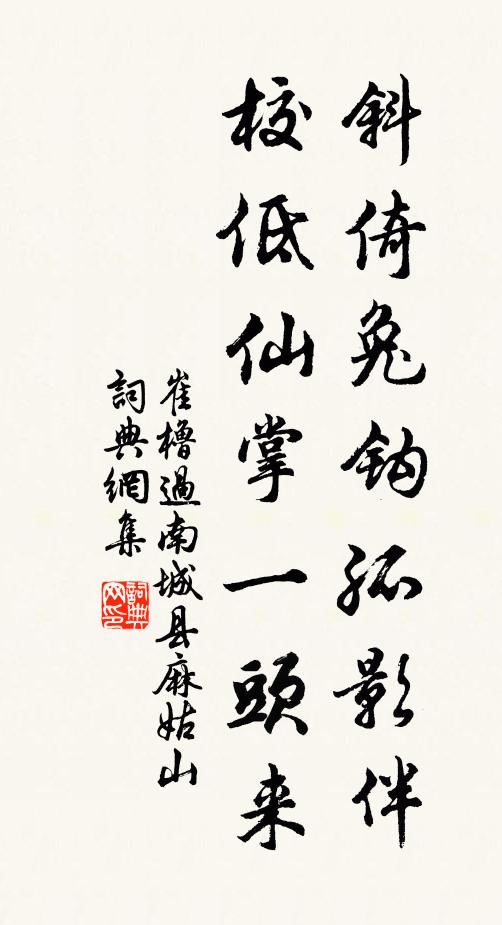 斜倚兔鈎孤影伴
校低仙掌一頭来
崔櫓過南城县麻姑山
詞典網集
詞典网印